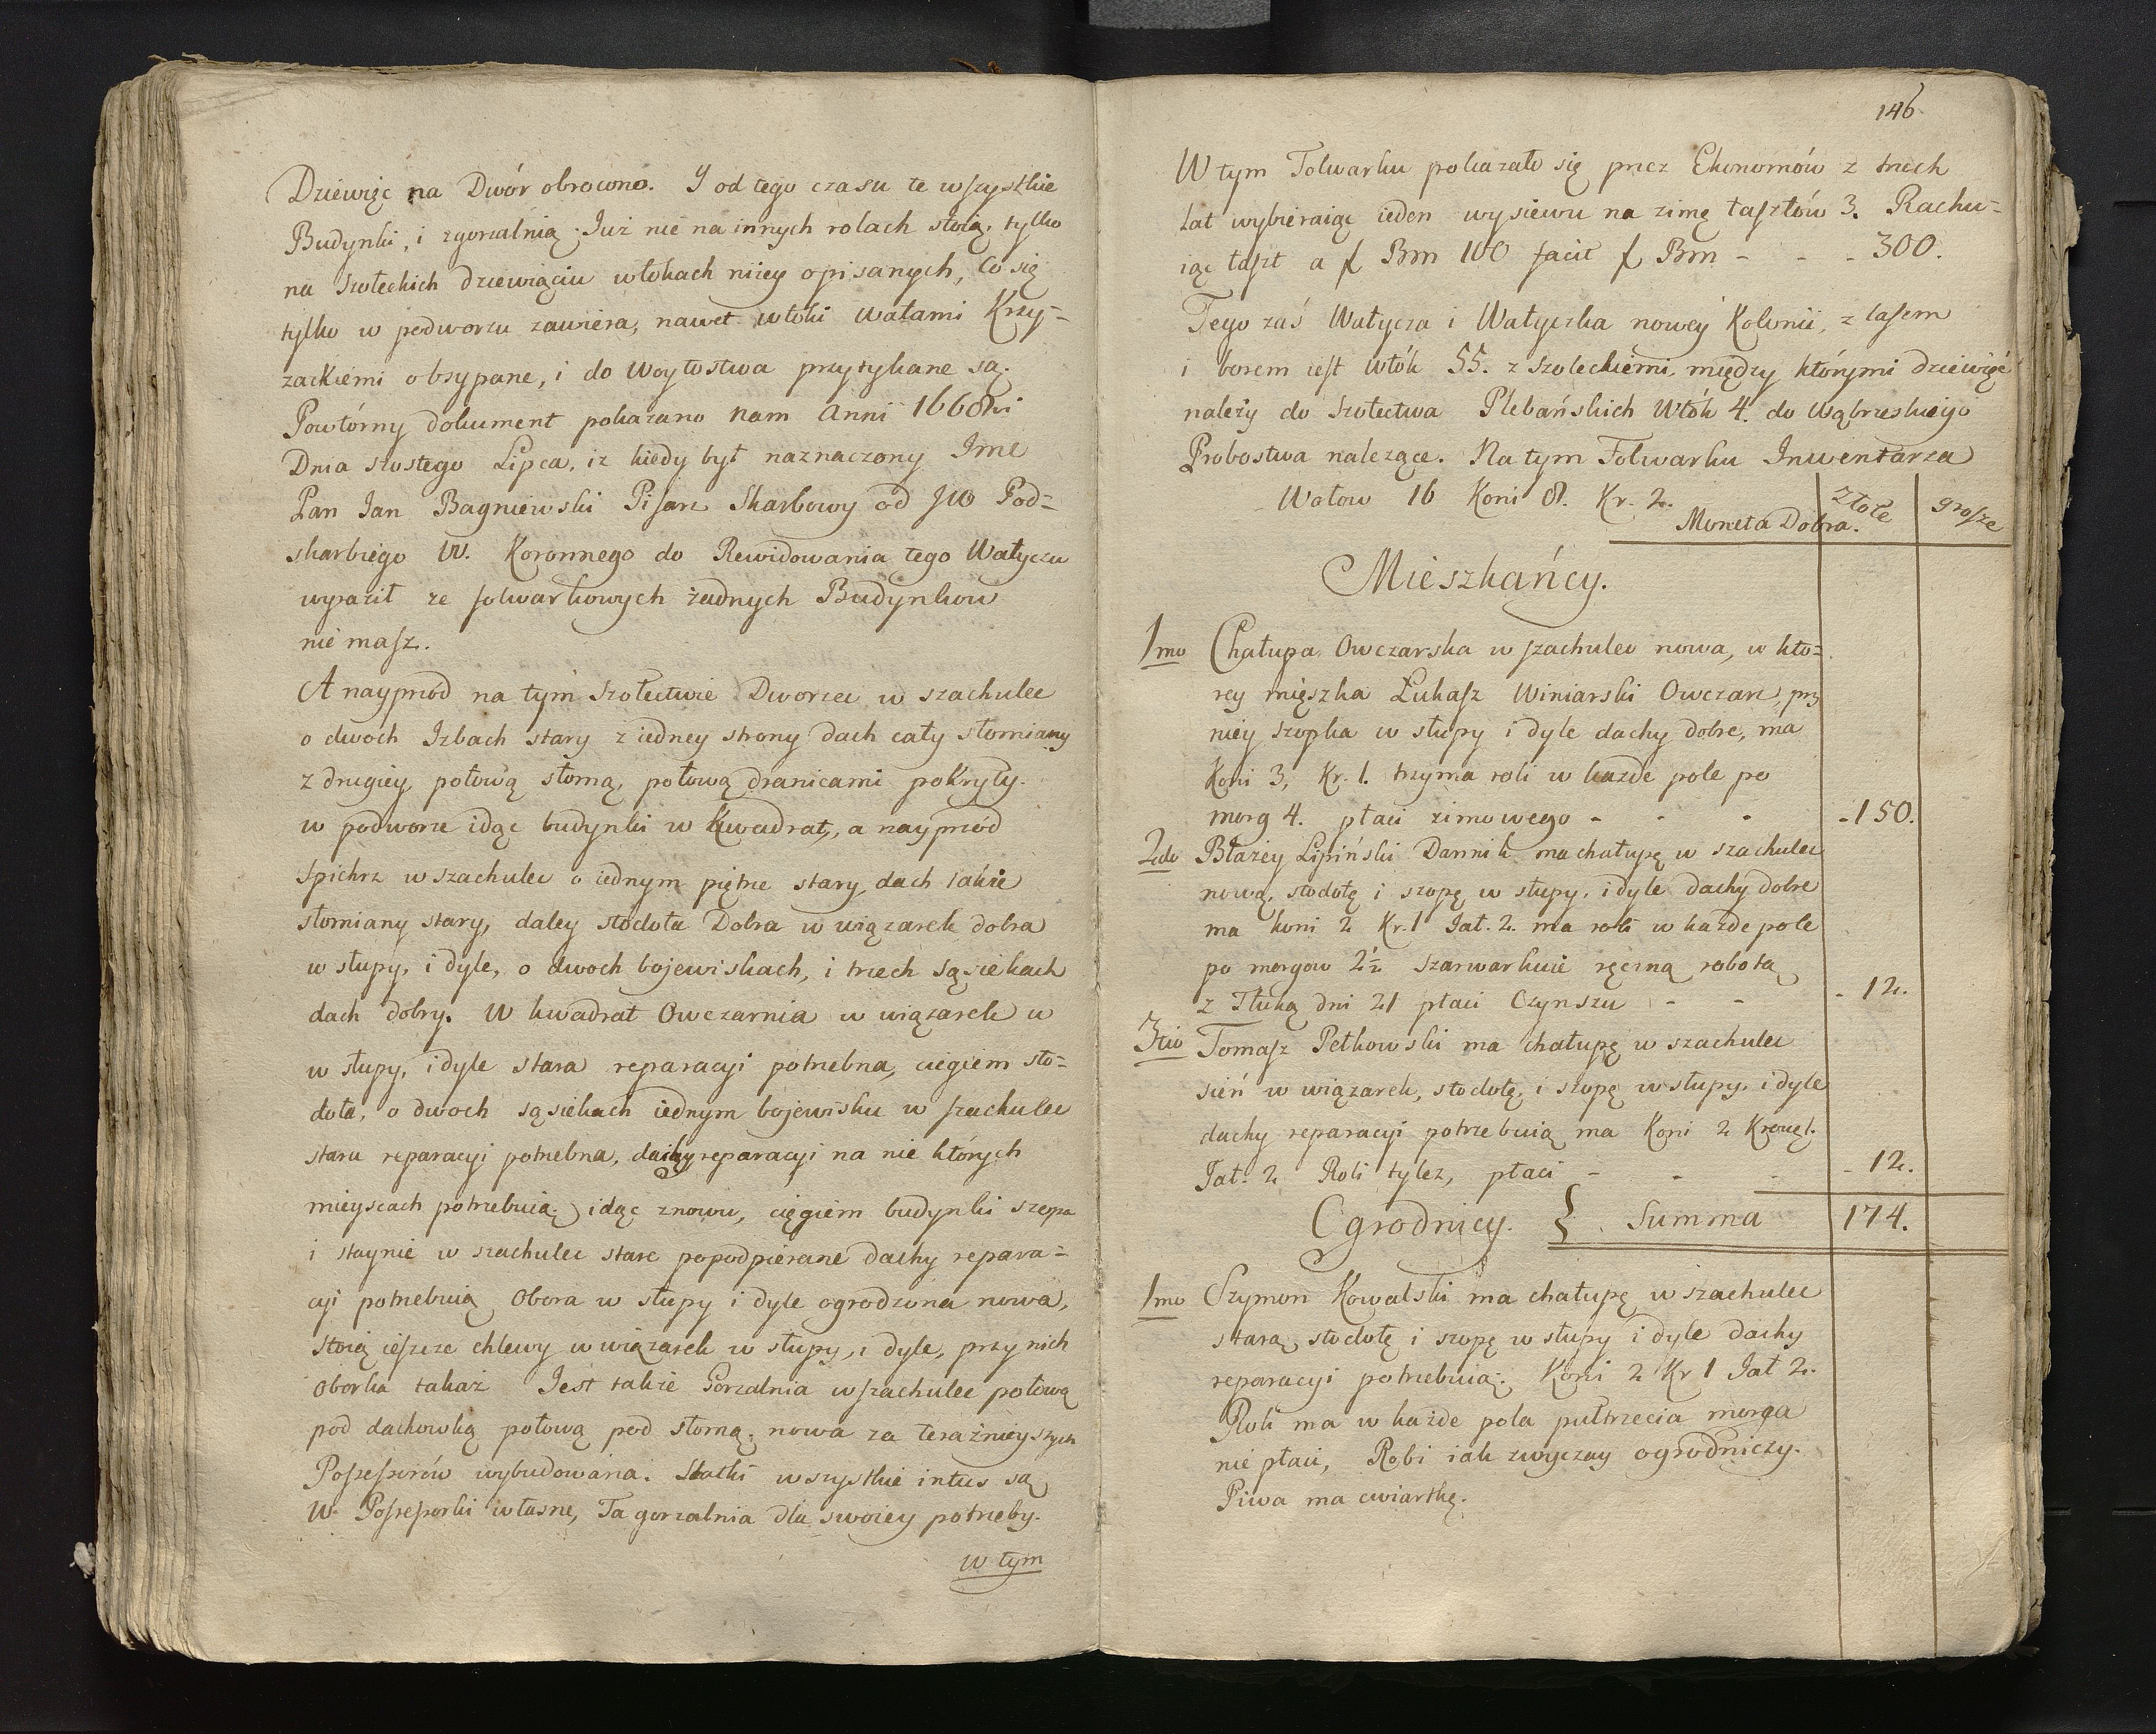 Dziewięc na Dwór obrocono. Y od tego czasu te wszystkie
Budynki, i z gorzalnią. Już nie na innych rolach stoią, tylko
na szołeckich dziewiąciu włokach niżey opisanych, Co się
tylko w podworzu zawiera, nawet włoki wałami Krzy=
żackiemi obsypane, i do Woytostwa przytykane są.
Powtórny dokument pokazano nam Anni 1668vi
Dnia szostego Lipca, iż kiedy był naznaczony Jme
Pan Jan Bagniewski Pisarz Skarbowy od JW Pod=
skarbiego W. Koronnego do Rewidowania tego Wałycza
wyraził ze folwarkowych żadnych Budynkow
nie masz.
A nayprzod na tym szołectwie Dworzec w szachulec
o dwoch Izbach stary z iedney strony dach cały słomiany
z drugiey połową słomą, połową dranicami pokryty.
w podworze idąc budynki w Kwadrat, a nayprzód
Spichrz w szachulec o iednym piętrze stary, dach także
słomiany stary, daley stodoła Dobra w wiązarek dobra
w słupy, i dyle, o dwoch bojewiskach, i trzech sąsiekach
dach dobry. W kwadrat Owczarnia w wiązarek w
w słupy, i dyle stara reparacyi potrzebna, ciegiem sto=
doła, o dwoch sąsiekach iednym bojewisku w szachulec
stara reparacyi potrzebna, dachy reparacyi na nie których
mieyscach potrzebuią. idąc znowu, cięgiem budynki szopa
i staynie w szachulec stare popodpierane dachy repara=
cyi potrzebuią Obora w słupy i dyle ogrodzona nowa,
stoią ieszcze chlewy w wiązarek w słupy, i dyle, przy nich
oborka takaż Jest także Gorzalnia w szachulec połową
pod dachowką połową pod słomą. nowa za teraźnieyszych
Possessorów wybudowana. Statki wszystkie intus są
W. Possessorki własne, Ta gorzalnia dla swoiey potrzeby.
w tym
146
W tym Folwarku pokazało się przez Ekonomów z trzech
lat wybieraiąc ieden wysiewu na zimę łasztów 3. Rachu=
iąc łaszt a f Brn 100 facit f Brn - - - 300.
Tego zaś Wałycza i Wałyczka nowey Kolonii, z lasem
i borem iest włók 55. z szoleckiemi, między którymi dziewięć
należy do szołectwa Plebańskich Włók 4. do Wąbrzeskiego
Probostwa nalezące. Na tym Folwarku Inwentarza
Wołow 16 Koni 8. Kr. 2.
Moneta Dobra. złote grosze
Mieszkańcy.
1mo Chałupa Owczarska w szachulec nowa, w kto=
rey mięszka Łukasz Winiarski Owczarz, przy
niey szopka w słupy i dyle dachy dobre, ma
Koni 3, Kr. 1. trzyma roli w kazde pole po
morg 4. płaci zimowego - - - - 150.
2do Błażey Lipiński Dannik ma chałupę w szachulec
nową, stodołę i szopę w słupy, i dyle dachy dobre
ma koni 2 Kr. 1 Jał. 2. ma roli w każde pole
po morgow 2½ szarwarkuie ręczną robotą
z Tłuką dni 21 płaci Czynszu - - - 12.
3tio Tomasz Petkowski ma chałupę w szachulec
sień w wiązarek, stodołę, i szopę w słupy, i dyle
dachy reparacyi potrzebuią ma Koni 2 Krowę 1.
Jał. 2 Roli tylez, płaci - - - - 12.
Ogrodnicy. Summa 174.
1mo Szymon Kowalski ma chałupę w szachulec
starą, stodołę i szopę w słupy i dyle dachy
reparacyi potrzebuią. Koni 2 Kr 1 Jał 2.
Roli ma w każde pola pułtrzecia morga
nie płaci, Robi iak zwyczay ogrodniczy.
Piwa ma cwiartkę.